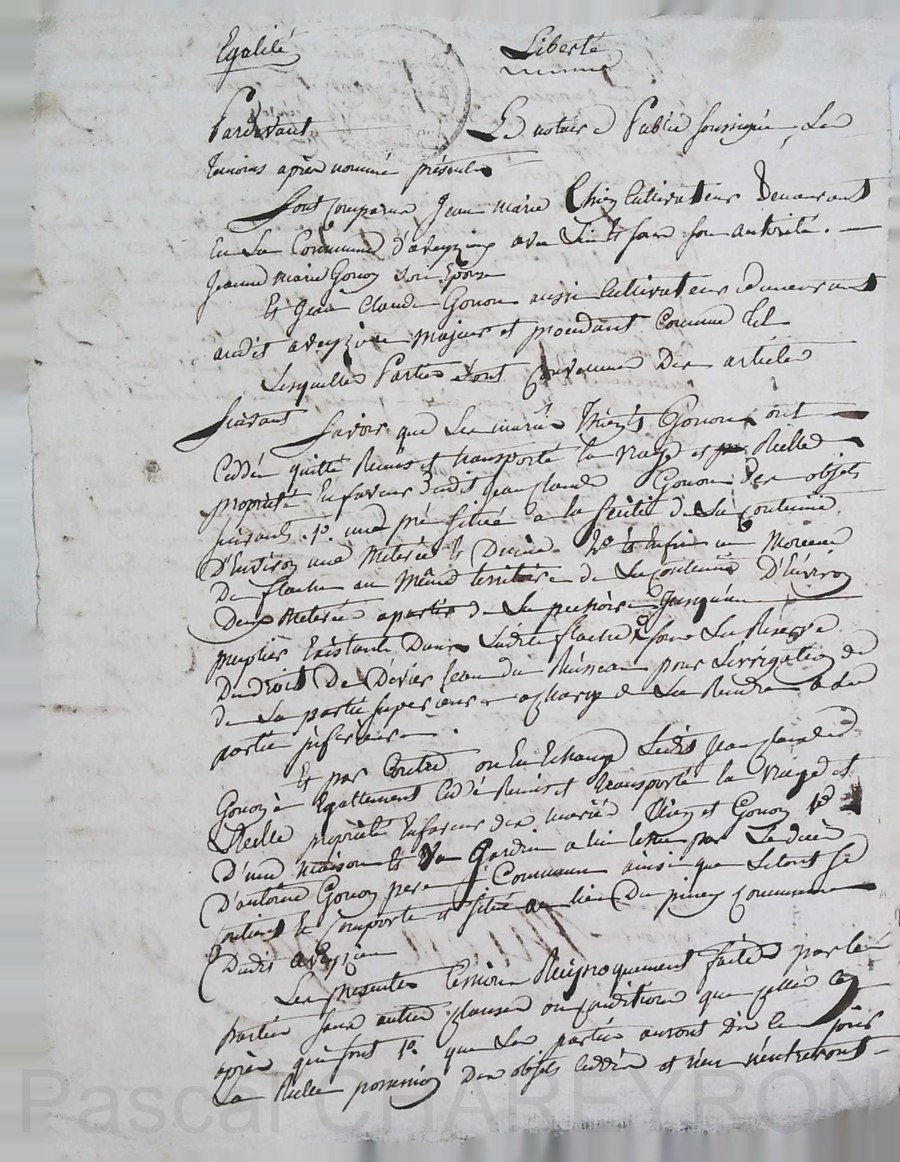 Egalité Liberté
Pardevant Le notaire Public soussigné, Les
temoins après nommé présents
Sont comparus Jean marie Thiez Cultivateur Demeurant
En La Commune d'aveyzieu avec son autorité.
Jeanne marie Gonon Son Epouse
Et Jean Claude Gonon aussi Cultivateur demeurant
audit aveyzieu majeur et procédant Comme tel
Lesquelles Parties sont Convenue Des articles
Suivant Savoir que Les mariés Thiez et Gonon ont
Ceddé quitté Remis et transporté la vraye et Réelle
propriété En faveur dudit Jean Claude Gonon Des objets
suivants 1°. une pré située a la De La Contenue
D'Environ une Meterée et Demie 2° et Enfin un Morceau
De flache au Même territoire De La Contenue D'Environ
Deux Meterée a partir de La jusqu'au
peuplier Existante Dans Ladite flache, sous La Reserve
Du droit De Dévier Leau du Ruisseau pour Lirrigation de
De La partie superieure a charge de La Rendre a La
partie inferieure.
Et par Contre ou En Echange Ledit Jean Claude
Gonon a Egallement Ceddé Remis et transporté la vraye et
Réelle propriété En faveur des mariés Thiez et Gonon
D'une maison Et Jardin a lui par Le décès
D'antoine Gonon pere Commun ainsi que Letout se
contient et Comporte et situé au lieu Du piney Commune
Dudit aveyzieu
Les presentes Cession Reciproquement faites par les
parties sans autres clauses ou conditions que celles cy
après qui sont 1°. que Les parties auront Dès Ce jour
La Réelle possession Des objets Ceddés et n'en n'entreront
Pascal CHAREYRON